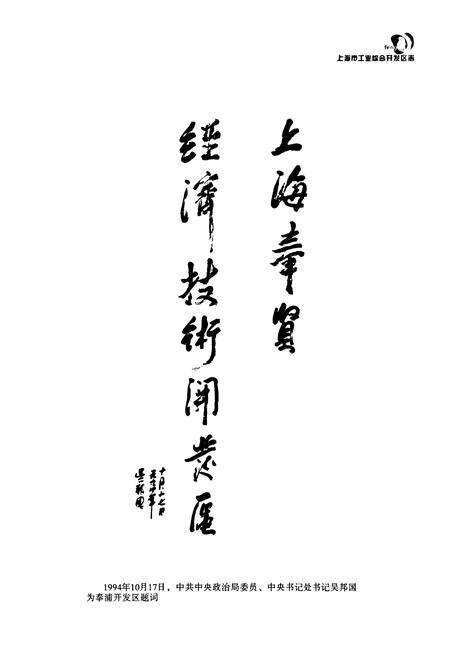 上海市工业综合开发区志
上海奉賢
經濟技術開發區
十月十七日
吴邦国
1994年10月17日，中共中央政治局委员、中央书记处书记吴邦国
为奉浦开发区题词